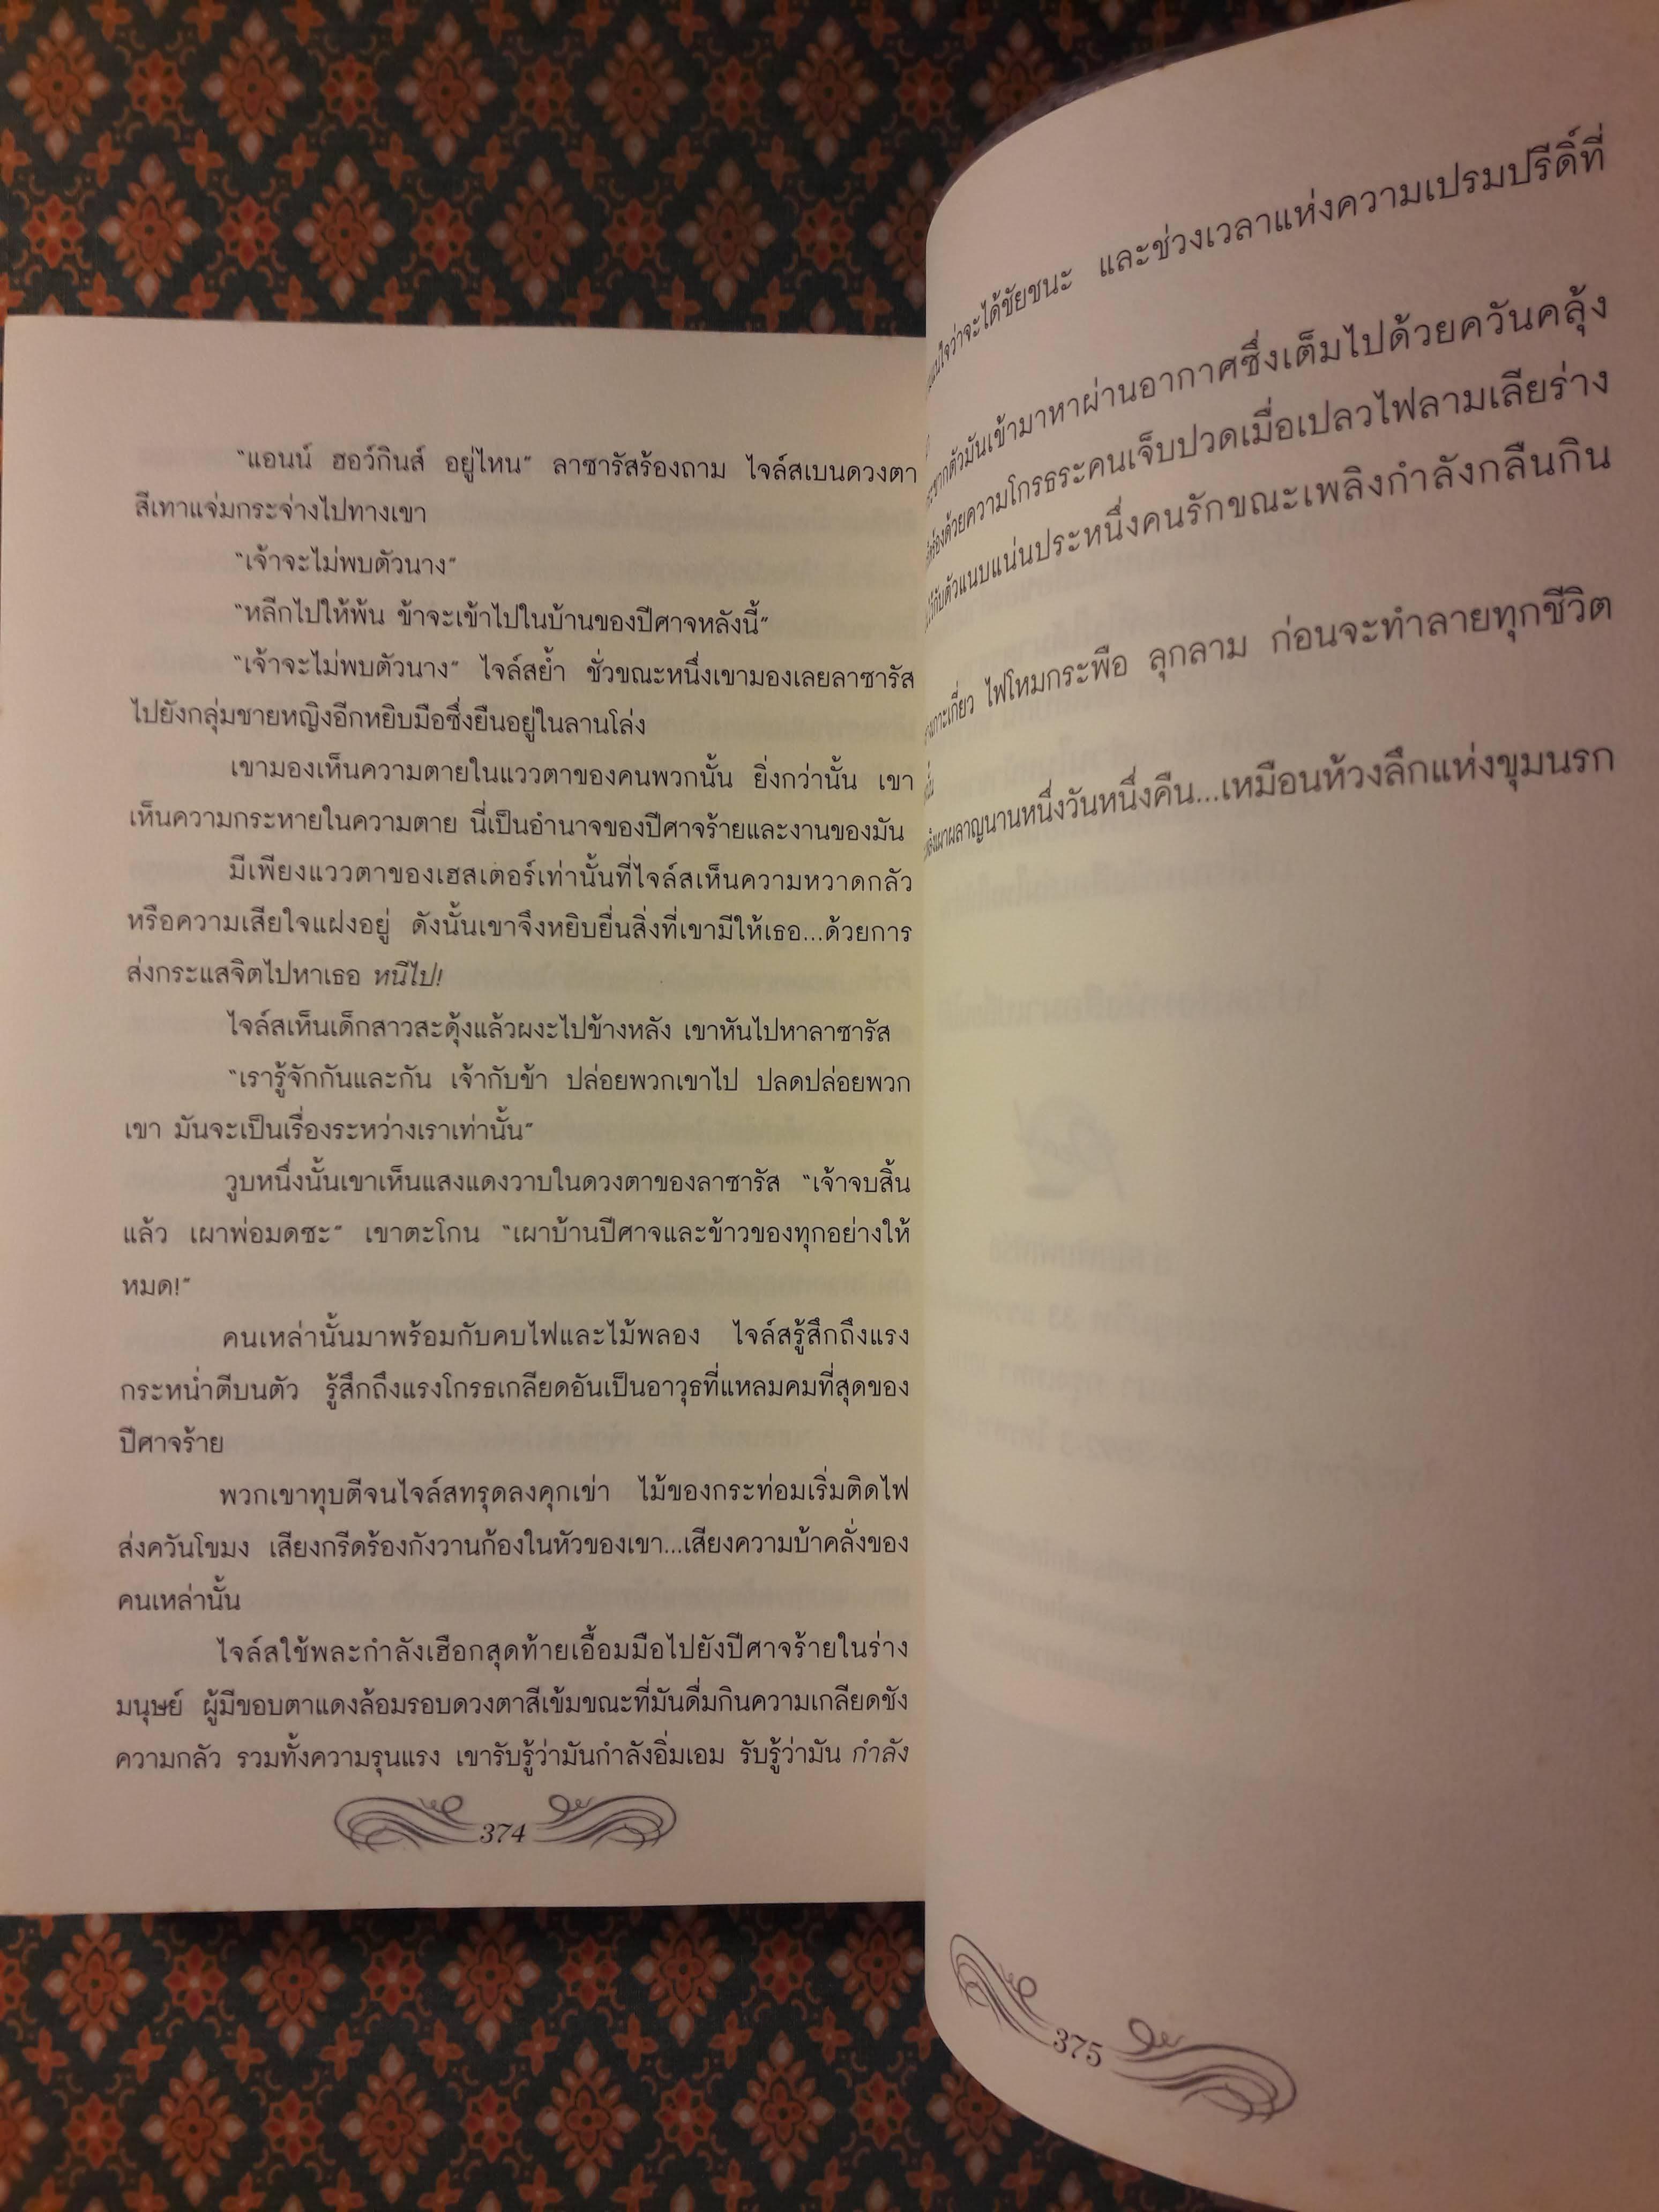 “แอนน์ ฮอว์กินส์ อยู่ไหน” ลาซารัสร้องถาม ไจล์สเบนดวงตา
สีเทาแจ่มกระจ่างไปทางเขา
“เจ้าจะไม่พบตัวนาง”
“หลีกไปให้พ้น ข้าจะเข้าไปในบ้านของปีศาจหลังนี้”
“เจ้าจะไม่พบตัวนาง” ไจล์สย้ำ ชั่วขณะหนึ่งเขามองเลยลาซารัส
ไปยังกลุ่มชายหญิงอีกหยิบมือซึ่งยืนอยู่ในลานโล่ง
เขามองเห็นความตายในแววตาของคนพวกนั้น ยิ่งกว่านั้น เขา
เห็นความกระหายในความตาย นี่เป็นอำนาจของปีศาจร้ายและงานของมัน
มีเพียงแววตาของเฮสเตอร์เท่านั้นที่ไจล์สเห็นความหวาดกลัว
หรือความเสียใจแฝงอยู่ ดังนั้นเขาจึงหยิบยื่นสิ่งที่เขามีให้เธอ...ด้วยการ
ส่งกระแสจิตไปหาเธอ หนีไป!
ไจล์สเห็นเด็กสาวสะดุ้งแล้วผงะไปข้างหลัง เขาหันไปหาลาซารัส
“เรารู้จักกันและกัน เจ้ากับข้า ปล่อยพวกเขาไป ปลดปล่อยพวก
เขา มันจะเป็นเรื่องระหว่างเราเท่านั้น”
วูบหนึ่งนั้นเขาเห็นแสงแดงวาบในดวงตาของลาซารัส “เจ้าจบสิ้น
แล้ว เผาพ่อมดซะ” เขาตะโกน “เผาบ้านปีศาจและข้าวของทุกอย่างให้
หมด!”
คนเหล่านั้นมาพร้อมกับคบไฟและไม้พลอง ไจล์สรู้สึกถึงแรง
กระหน่ำตีบนตัว รู้สึกถึงแรงโกรธเกลียดอันเป็นอาวุธที่แหลมคมที่สุดของ
ปีศาจร้าย
พวกเขาทุบตีจนไจล์สทรุดลงคุกเข่า ไม้ของกระท่อมเริ่มติดไฟ
ส่งควันโขมง เสียงกรีดร้องกังวานก้องในหัวของเขา...เสียงความบ้าคลั่งของ
คนเหล่านั้น
ไจล์สใช้พละกำลังเฮือกสุดท้ายเอื้อมมือไปยังปีศาจร้ายในร่าง
มนุษย์ ผู้มีขอบตาแดงล้อมรอบดวงตาสีเข้มขณะที่มันดื่มกินความเกลียดชัง
ความกลัว รวมทั้งความรุนแรง เขารับรู้ว่ามันกำลังอิ่มเอม รับรู้ว่ามัน กำลัง
374
ใจว่าจะได้ชัยชนะ และช่วงเวลาแห่งความเปรมปรีดิ์ที่
ตัวมันเข้ามาหาผ่านอากาศซึ่งเต็มไปด้วยควันคลุ้ง
ด้วยความโกรธระคนเจ็บปวดเมื่อเปลวไฟลามเลียร่าง
ตัวแนบแน่นประหนึ่งคนรักขณะเพลิงกำลังกลืนกิน
ไฟโหมกระพือ ลุกลาม ก่อนจะทำลายทุกชีวิต
เผาผลาญนานหนึ่งวันหนึ่งคืน...เหมือนห้วงลึกแห่งขุมนรก
375